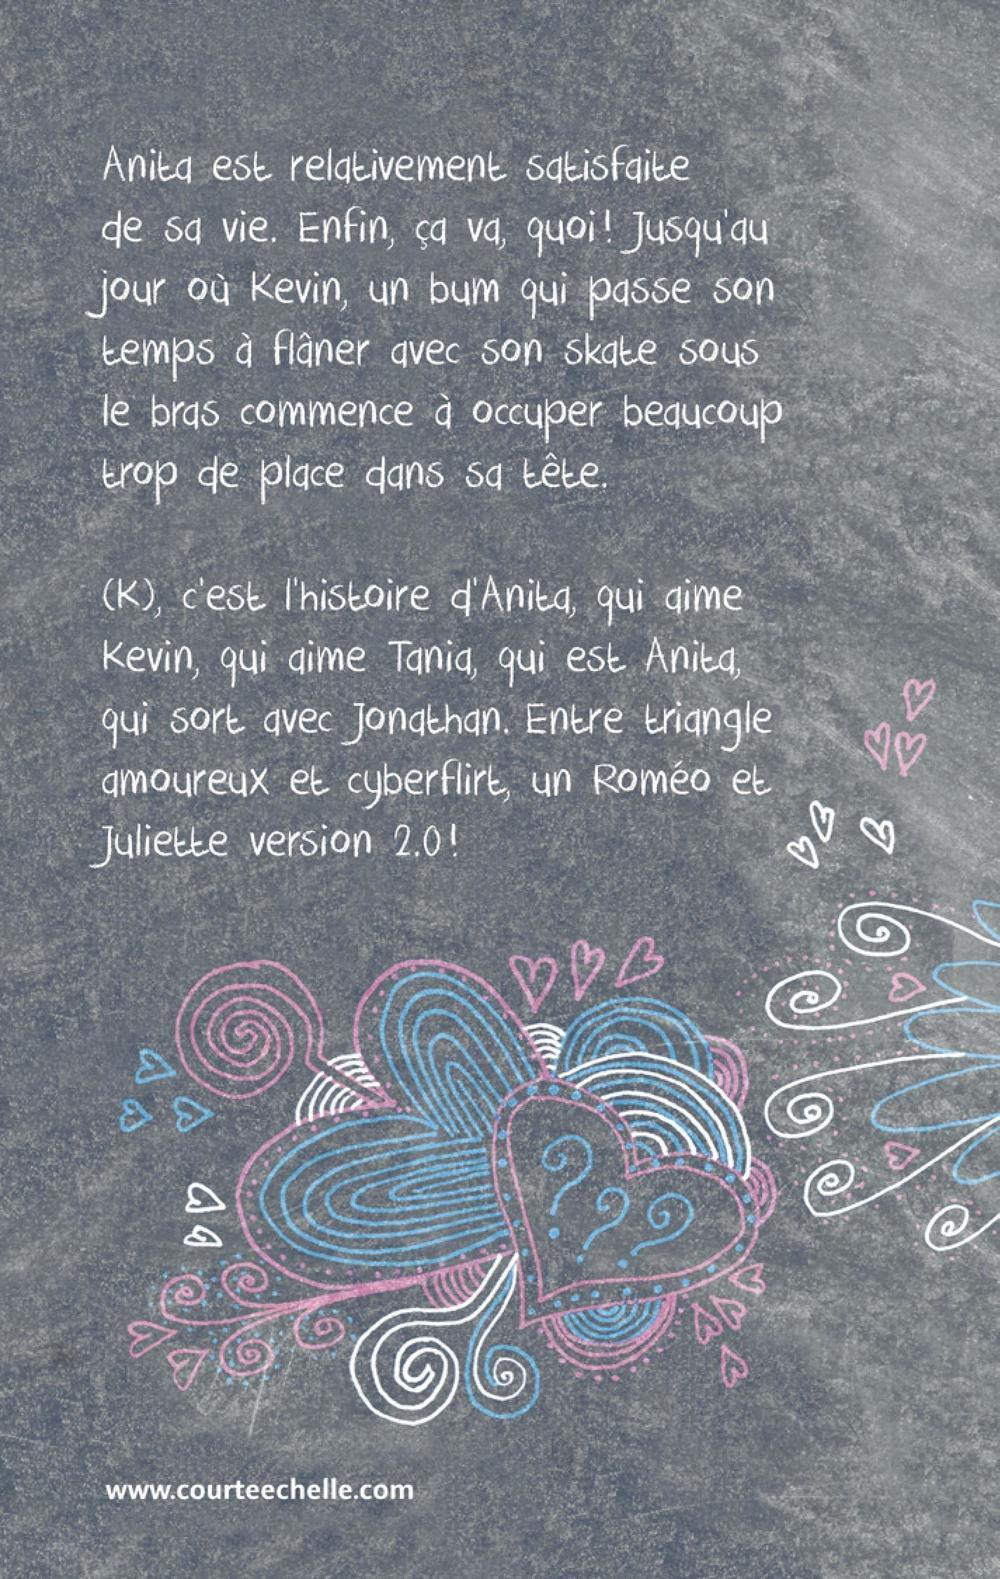 Anita est relativement satisfaite
de sa vie. Enfin, ça va, quoi! Jusqu'au
jour où Kevin, un bum qui passe son
temps à flâner avec son skate sous
le bras commence à occuper beaucoup
trop de place dans sa tête.
(K), c'est l'histoire d'Anita, qui aime
Kevin, qui aime Tania, qui est Anita,
qui sort avec Jonathan. Entre triangle
amoureux et cyberflirt, un Roméo et
Juliette version 2.0!
???
www.courteechelle.com